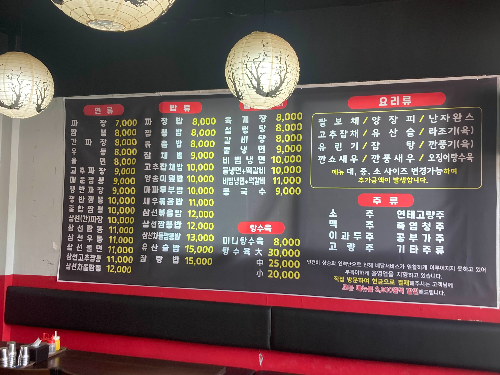 면류
짜 장 7,000
짬 뽕 8,000
간 짜 장 8,000
우 동 8,000
울 면 8,000
고추짜장 9,000
매운짬뽕 9,000
쟁반짜장 9,000
10,000
10,000
삼선간짜장 10,000
삼선짬뽕 11,000
삼선우동 11,000
삼선울면 11,000
삼선고추짬뽕 12,000
12,000
밥류
짜 장 밥 8,000
짬 뽕 밥 8,000
볶 음 밥 8,000
잡 채 밥 9,000
고추잡채밥 10,000
양송이덮밥 10,000
마파두부밥 10,000
새우볶음밥 10,000
삼선볶음밥 12,000
삼선짬뽕밥 12,000
13,000
유산슬밥 15,000
잡 탕 밥 15,000
육 개 장 8,000
8,000
갈 비 탕 8,000
물 냉 면 9,000
비빔냉면 10,000
물냉면+떡갈비 11,000
비빔냉면+떡갈비 11,000
콩 국 수 9,000
탕수육
미니탕수육 8,000
탕수육 大 30,000
中 25,000
小 20,000
요리류
팔보채/양장피/난자완스
고추잡채/유산슬/라조기(육)
유린기/잡탕/깐풍기(육)
깐쇼새우/깐풍새우/오징어탕수육
메뉴 대, 중, 소 사이즈 변경가능하며
추가금액이 발생합니다.
주류
소 주 연태고량주
맥 주 죽엽청주
이과두주 공부가주
고량주 기타주류
직접 방문하여 현금으로 결제해주시는 고객님께